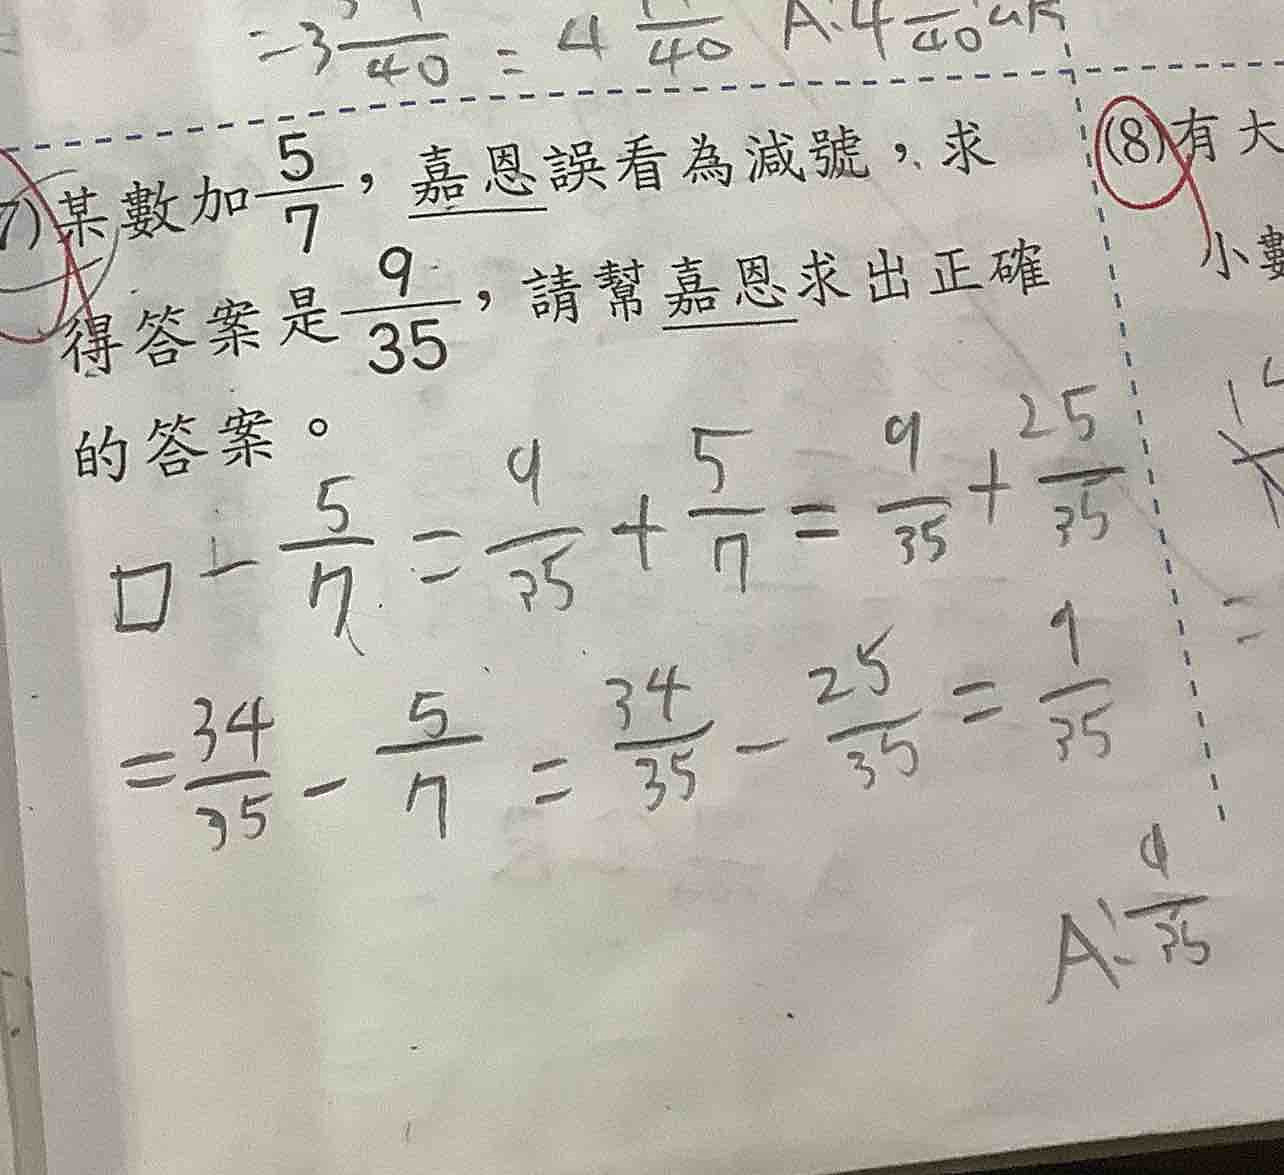 =3 —/40 = 4 —/40 A:4 —/40
7) 某數加5/7，嘉恩誤看為減號，求
得答案是9/35，請幫嘉恩求出正確
的答案。
□ - 5/7 = 9/35 + 5/7 = 9/35 + 25/35
= 34/35 - 5/7 = 34/35 - 25/35 = 9/35
A: 9/35
(8) 有大
小數
=